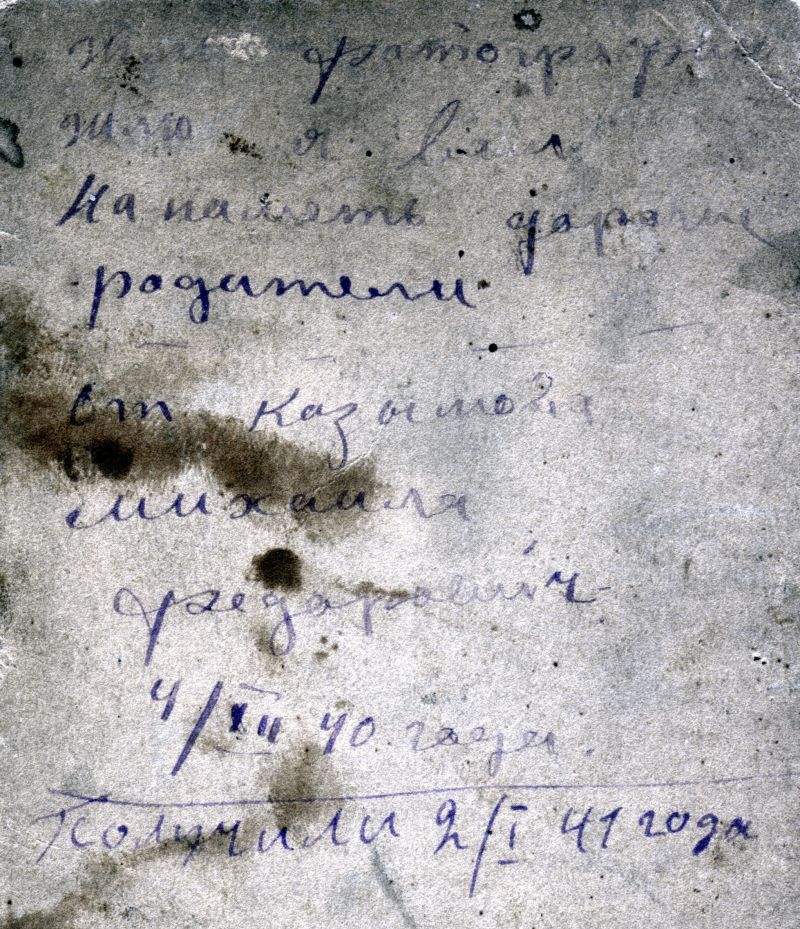 фотографи
шлю я вам
На память дорогие
родатели
от казымова
михаила
федарович
4/XII 40 года.
Получили 2/I 41 года